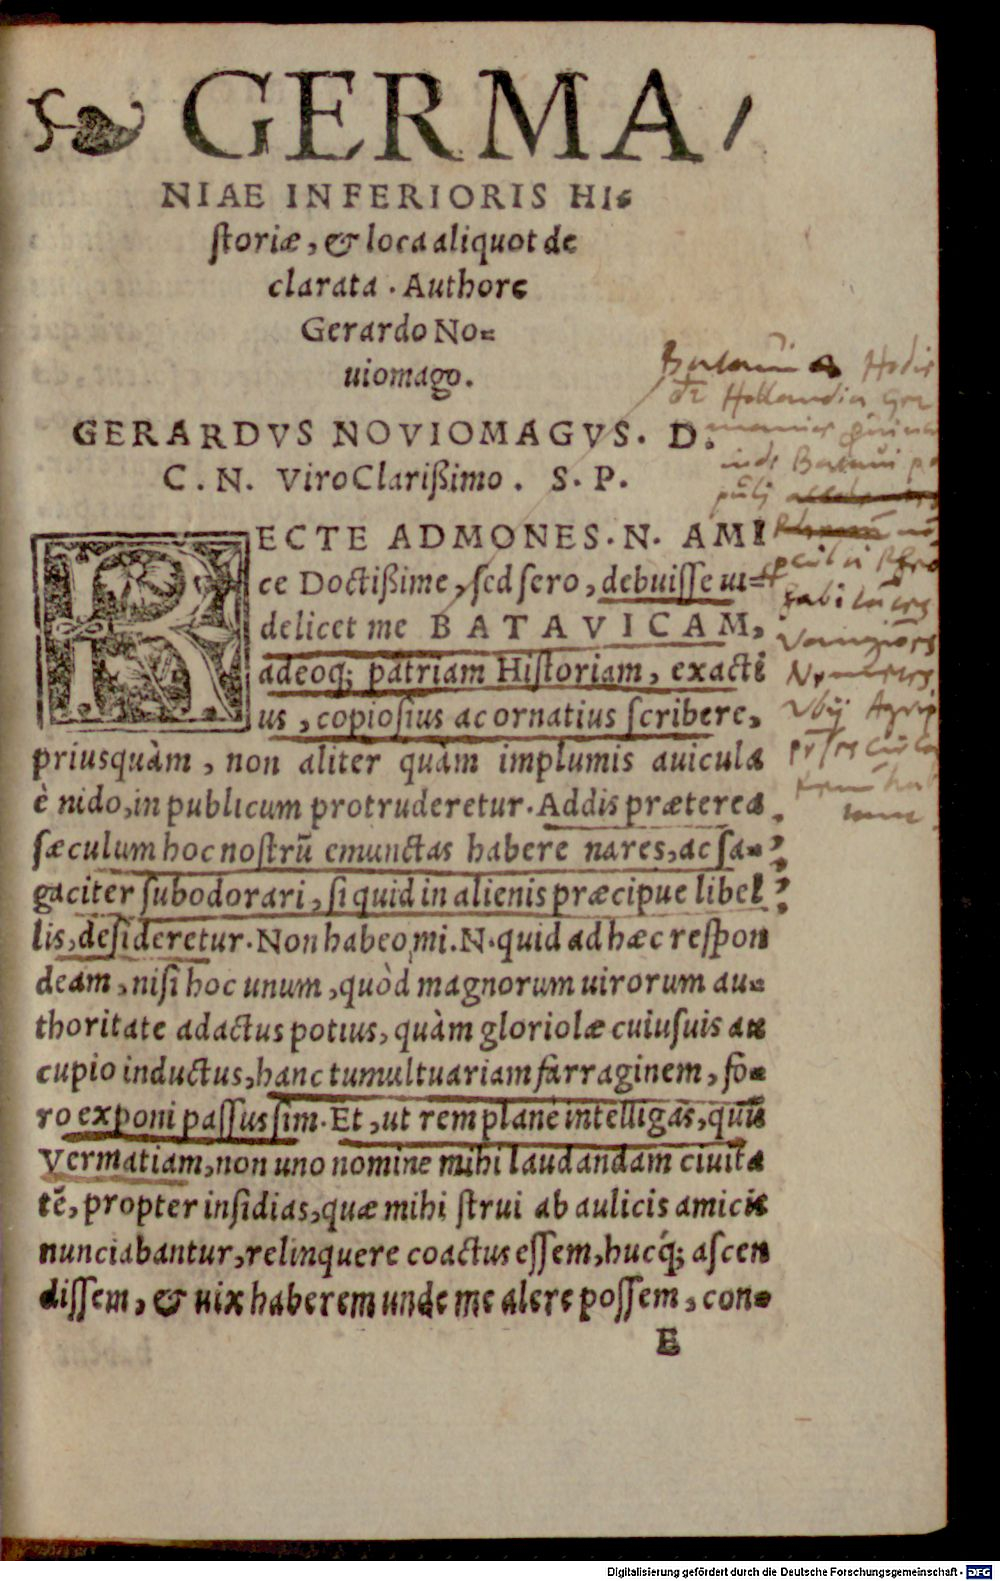 GERMA/
NIAE INFERIORIS HI-
storiæ, & loca aliquot de
clarata. Authore
Gerardo No-
uiomago.
GERARDVS NOVIOMAGVS. D.
C. N. Viro Clarißimo. S. P.
RECTE ADMONES. N. AMI
ce Doctißime, sed sero, debuisse ui-
delicet me BATAVICAM,
adeoq; patriam Historiam, exacti
us, copiosius ac ornatius scribere,
priusquàm, non aliter quàm implumis auicula
è nido, in publicum protruderetur. Addis præterea
sæculum hoc nostrū emunctas habere nares, ac sa-
gaciter subodorari, si quid in alienis præcipue libel
lis, desideretur. Non habeo mi. N. quid ad hæc respon
deam, nisi hoc unum, quòd magnorum uirorum au-
thoritate adactus potius, quàm gloriolæ cuiusuis au
cupio inductus, hanc tumultuariam farraginem, fo-
ro exponi passus sim. Et, ut rem planè intelligas, quū
Vermatiam, non uno nomine mihi laudandam ciuita
tē, propter insidias, quæ mihi strui ab aulicis amicis
nunciabantur, relinquere coactus essem, hucq́; ascen
dissem, & uix haberem unde me alere possem, con-
E
Hodie
Hollandia Ger
inde Batavi po
puli
habitātes
Vangiones
Nemetes
Vbij Agrip
Digitalisierung gefördert durch die Deutsche Forschungsgemeinschaft - DFG